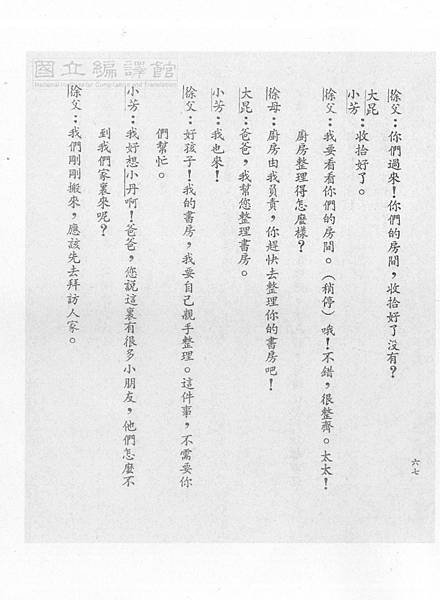 國立編譯館
National Institute for Compilation and Translation
徐父：你們過來！你們的房間，收拾好了沒有？
大昆
小芳：收拾好了。
徐父：我要看看你們的房間。（稍停）哦！不錯，很整齊。太太！
廚房整理得怎麼樣？
徐母：廚房由我負責，你趕快去整理你的書房吧！
大昆：爸爸，我幫您整理書房。
小芳：我也來！
徐父：好孩子！我的書房，我要自己親手整理。這件事，不需要你
們幫忙。
小芳：我好想小丹啊！爸爸，您說這裏有很多小朋友，他們怎麼不
到我們家裏來呢？
徐父：我們剛剛搬來，應該先去拜訪人家。
六七